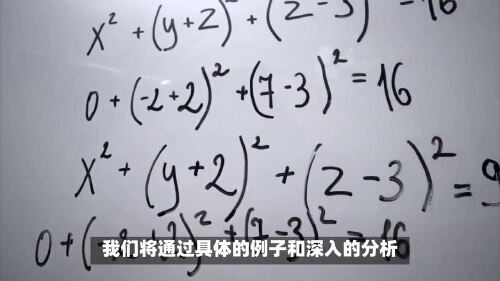 x² + (y+2)² + (z-3)² = 16
0 + (-2+2)² + (7-3)² = 16
x² + (y+2)² + (z-3)² = 9
0 + (-2+2)² + (7-3)² = 16
我们将通过具体的例子和深入的分析